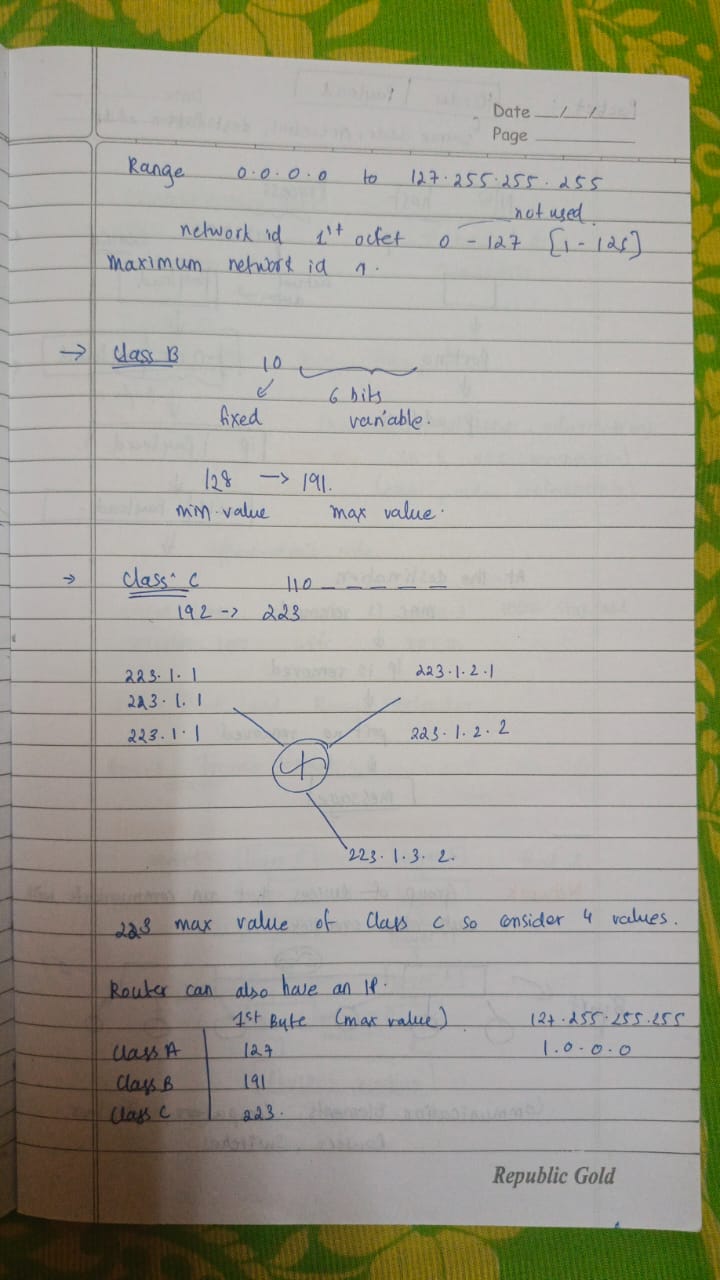 Date __/__/__
Page
Range 0.0.0.0 to 127.255.255.255
not used.
network id 1st octet 0 - 127 [1 - 126]
maximum network id
→ Class B 10
6 bits
fixed variable.
128 → 191.
min value max value.
→ Class C 110 _ _ _ _ _
192 → 223
223.1.1 223.1.2.1
223.1.1
223.1.1 223.1.2.2
223.1.3.2.
223 max value of Class C so consider 4 values.
Router can also have an IP.
1st Byte (max value) 127.255.255.255
Class A 127 1.0.0.0
Class B 191
Class C 223.
Republic Gold